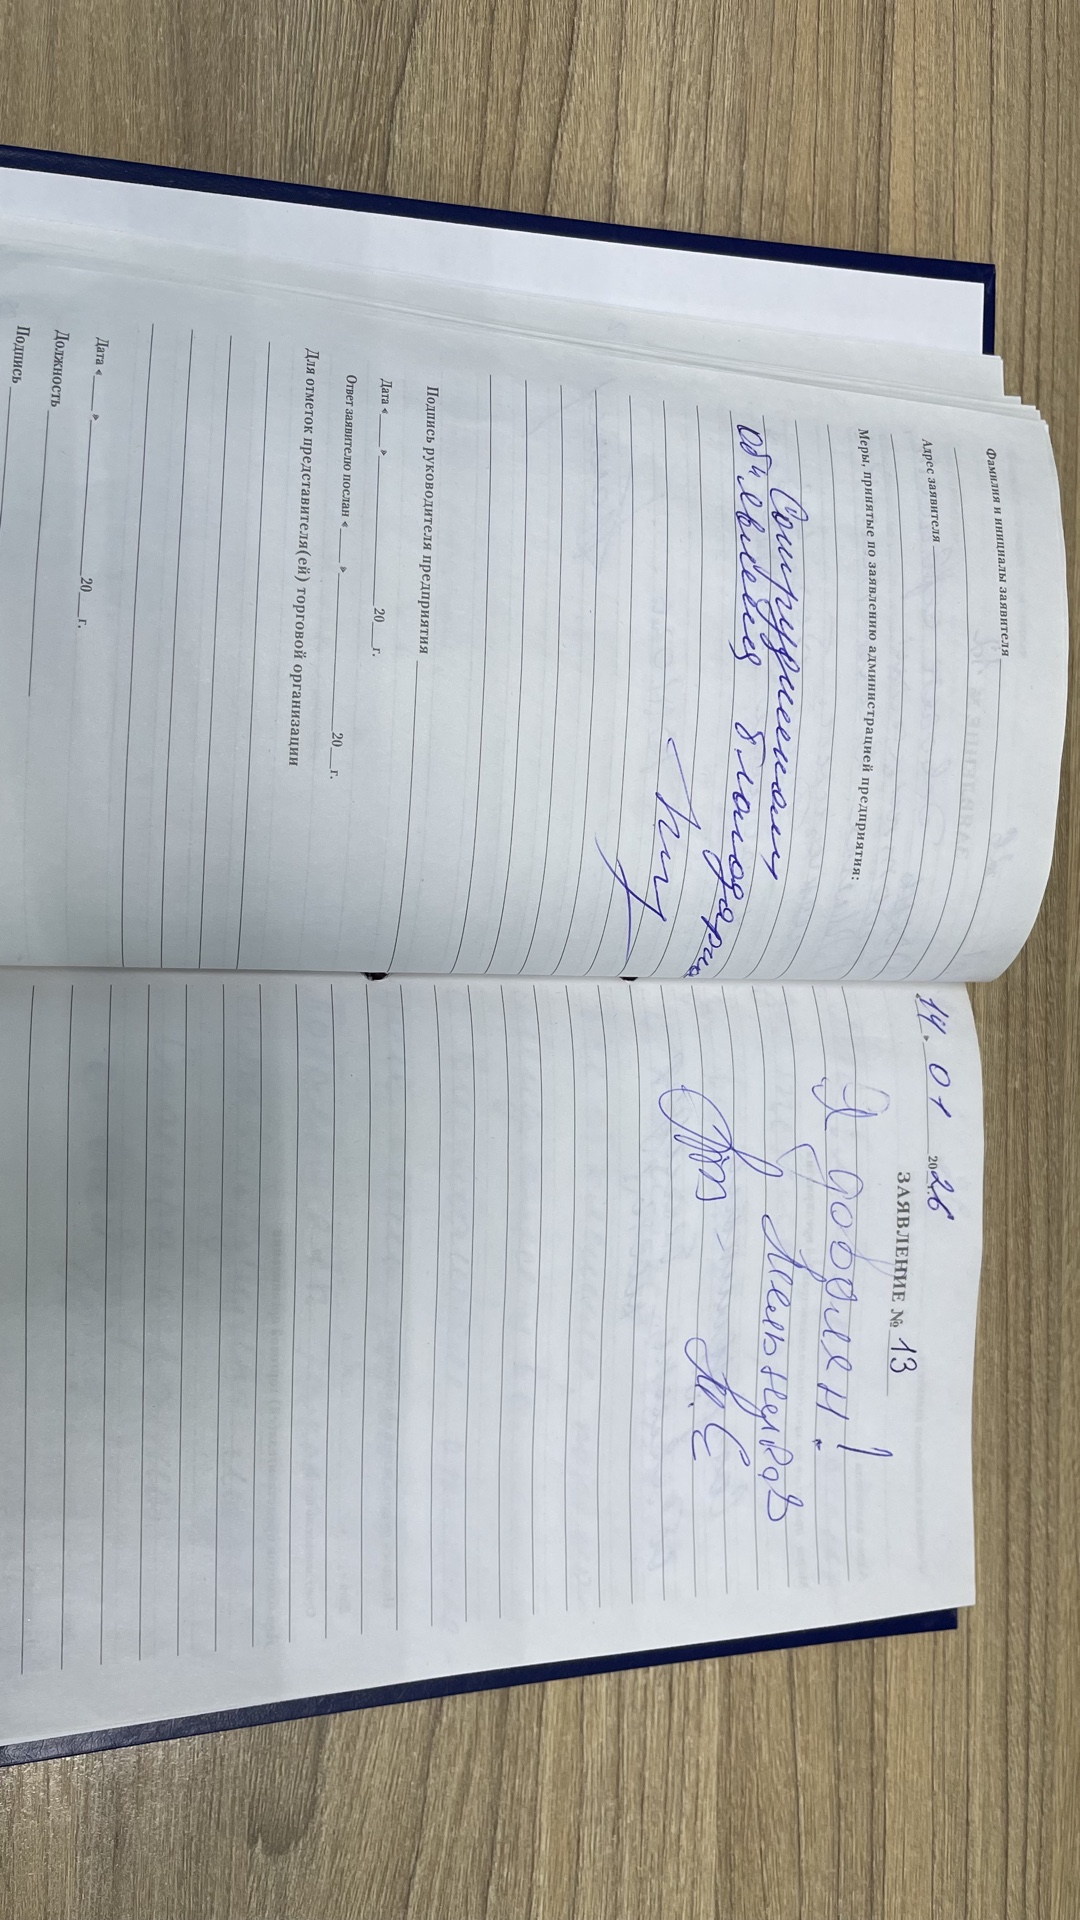 Фамилия и инициалы заявителя
Адрес заявителя
Меры, принятые по заявлению администрацией предприятия:
Сотрудникам
объявлена благодарность
Подпись руководителя предприятия
Дата « » 20 г.
Ответ заявителю послан « » 20 г.
Для отметок представителя(ей) торговой организации
Дата « » 20 г.
Должность
Подпись
14. 01 2026
ЗАЯВЛЕНИЕ № 13
Я доволен!
М.Е